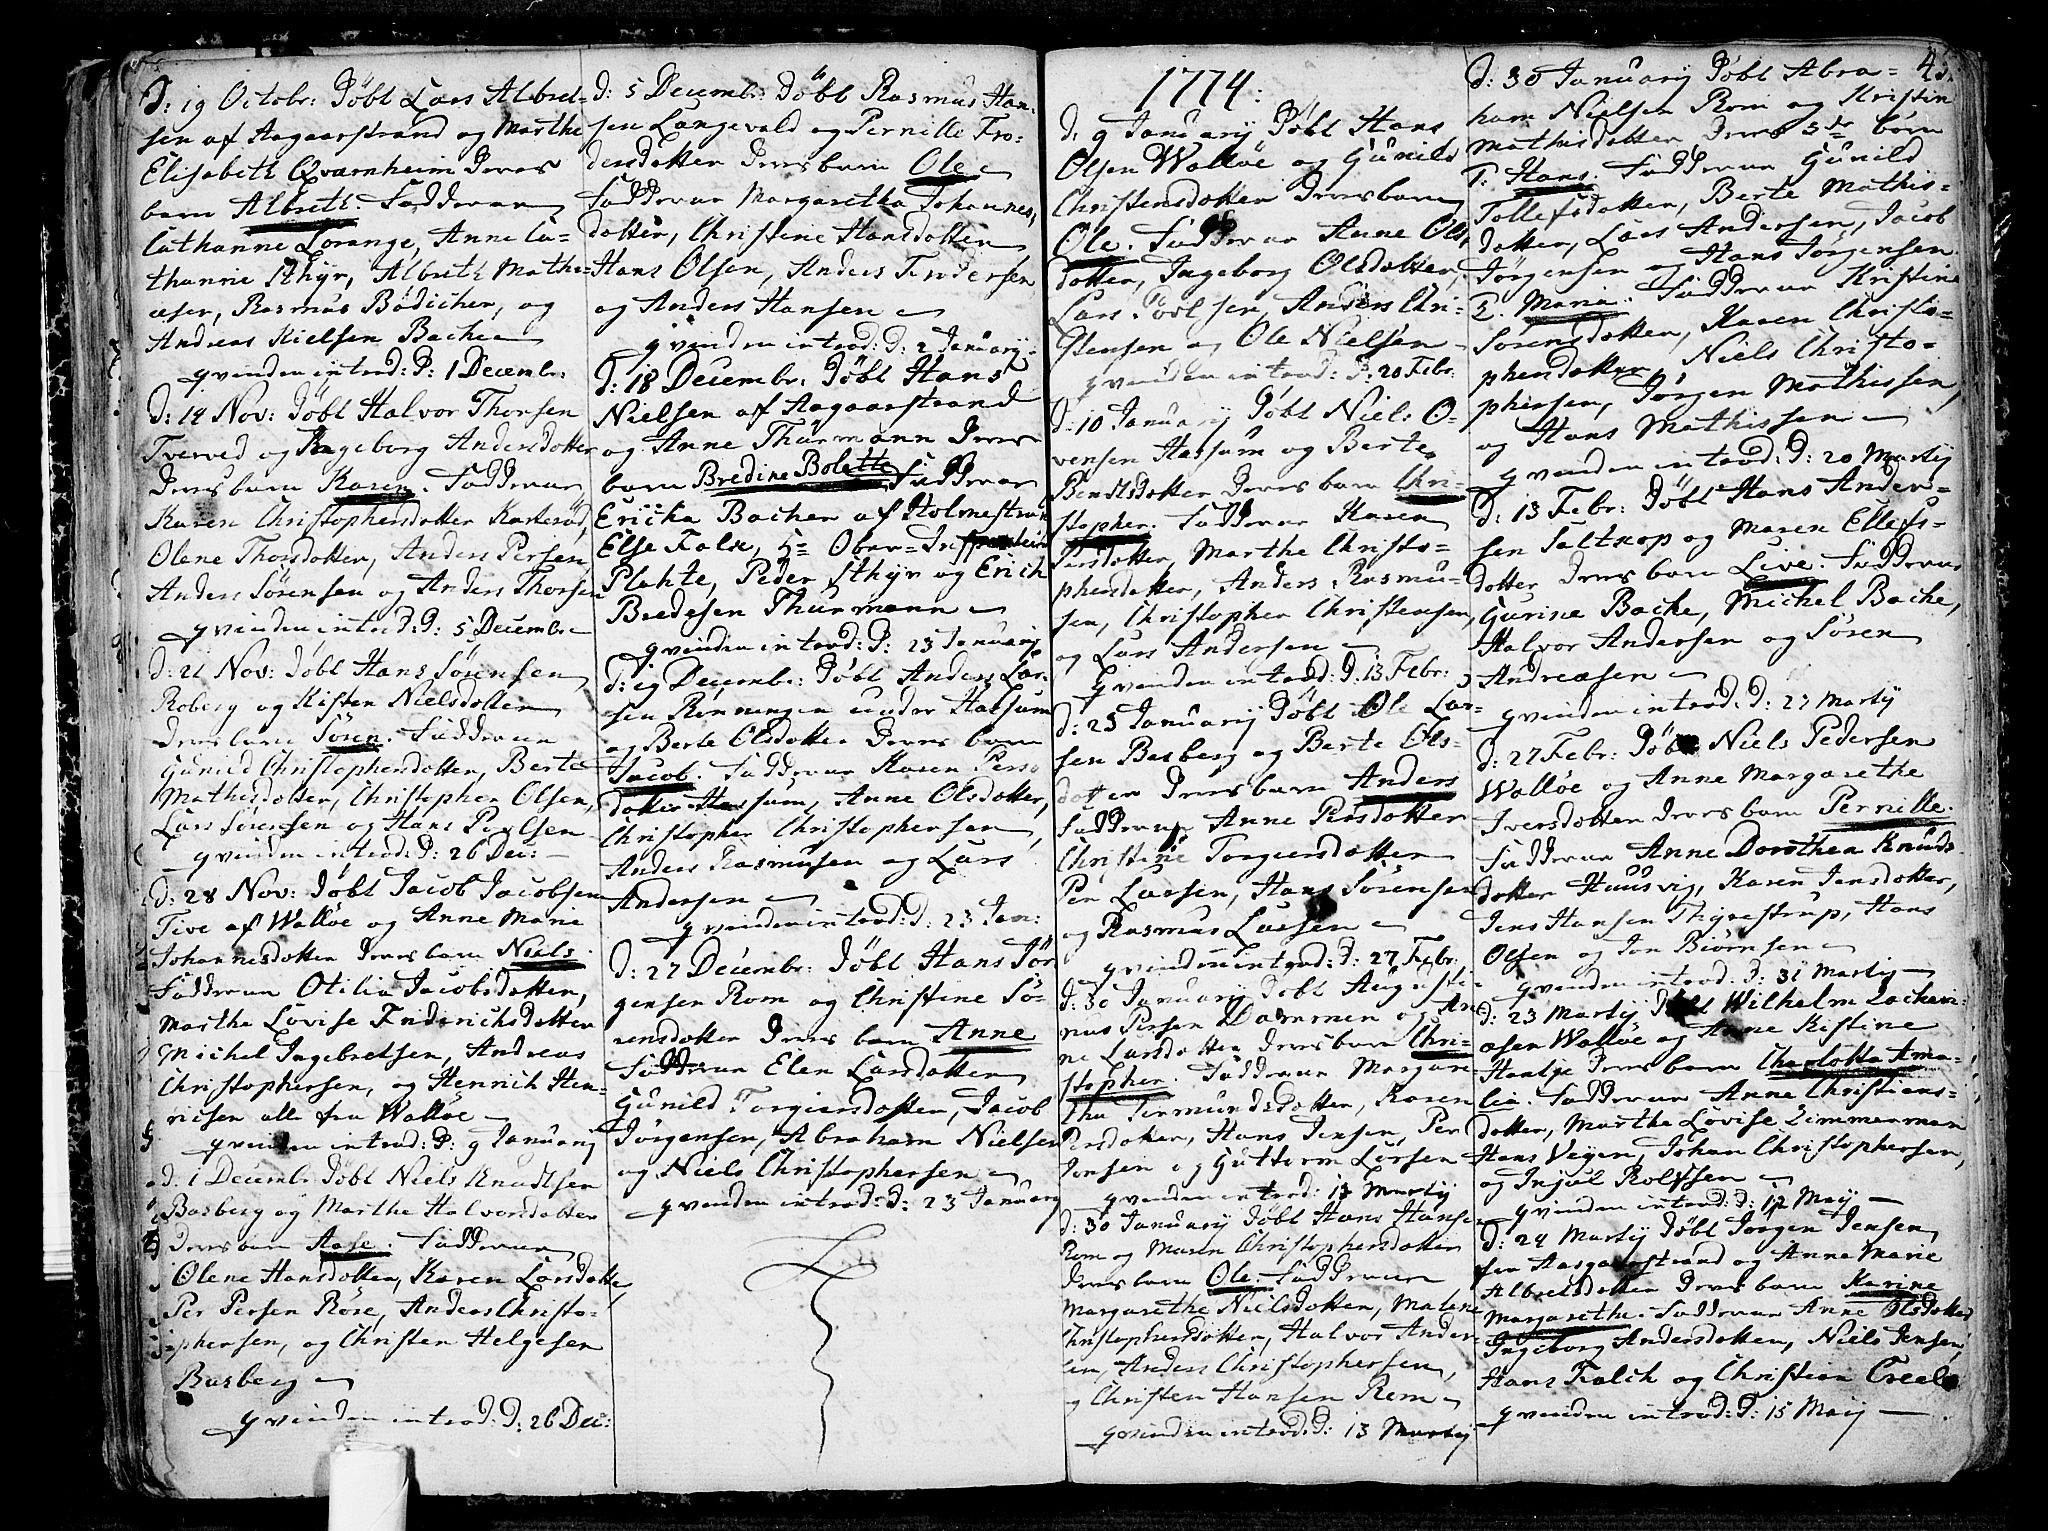 D: 19 Octobr: Döbt Lars Albret-
sen af Aagaarstrand og Marthe
Elisabeth Qvarnheim Deres
barn Albreth. Faddere var
Cathanne Lorange, Anne Ca-
thanne Sthÿr, Albreth Mathi-
æsen, Rasmus Bödicher, og
Andreas Nielsen Bache
qvinden introd: D: 1 Decembr:
D: 14 Nov: Döbt Halvor Thorsen
Tverved og Ingeborg Andersdotter
Deres barn Karen. Faddere var
Karen Christophersdotter
Olene Thorsdotter, Anders Persen
Anders Sörensen og Anders Thorsen
qvinden introd: D: 5 Decembr
D: 21 Nov: Döbt Hans Sörensen
Roberg og Kisten Nielsdotter
Deres barn Sören. Faddere var
Gunild Christophersdotter, Berte
Mathisdotter, Christopher Olsen,
Lars Sörensen og Hans Poulsen
qvinden introd: D: 26 Dec:
D: 28 Nov: Döbt Jacob Jacobsen
Tive af Walløe og Anne Marie
Johannesdotter Deres barn Niels.
Faddere var Otilia Jacobsdotter,
Marthe Lovise Friderichsdotter
Michel Ingebretsen, Andreas
Christophersen, og Henrich Hen-
richsen alle fra Walløe
qvinden introd: D: 9 Januarij
D: 1 Decembr Döbt Niels Knudtsen
Basberg og Marthe Halvorsdotter
Deres barn Aase. Faddere var
Olene Hansdotter, Karen Larsdotter,
Per Persen Röse, Anders Christo-
phersen, og Christen Helgesen
Basberg
qvinden introd: D: 26 Dec:
D: 5 Decembr: Döbt Rasmus Han-
sen Langevald og Pernille Fro-
densdotter Deres barn Ole
Faddere var Margaretha Johannes-
dotter, Christine Hansdotter
Hans Olsen, Anders Andersen
og Anders Hansen
qvinden introd: D: 2 Januarij
D: 18 Decembr: Döbt Hans
Nielsen af Aagaarstrand
og Anne Thurmann Deres
barn Bredine Bolette Faddere var
Ericka Bacher af Holmestrand
Else Falck, Hr Ober-Inspecteur
Plahte, Peder Sthÿr og Erich
Bredesen Thurmann
qvinden introd: D: 23 Januarij
D: 19 Decembr: Döbt Anders Lar-
sen Rönningen under Hassum
og Berte Olsdotter Deres barn
Jacob. Faddere var Karen Pers-
dotter Hassum, Anne Olsdotter,
Christopher Christophersen,
Anders Rasmusen og Lars
Andersen
qvinden introd: D: 23 Jan:
D: 27 Decembr: Döbt Hans Jör
gensen Rom og Christine Sö-
rensdotter Deres barn Anne
Faddere var Elen Larsdotter
Gunild Torgiersdotter, Jacob
Jörgensen, Abraham Nielsen
og Niels Christophersen
qvinden introd: D: 23 Januarij
1774:
D: 9 Januarij Döbt Hans
Olsen Walløe og Gunild
Christensdotter Deres barn
Ole. Faddere var Anne Ols-
dotter, Ingeborg Olsdotter,
Lars Povlsen, Anders Chri-
stensen og Ole Nielsen
qvinden introd: D: 20 Febr:
D: 10 Januarij Döbt Niels O-
vensen Hassum og Berte
Bendtsdotter Deres barn Chri-
stopher. Faddere var Karen
Persdotter, Marthe Christo-
phersdotter, Anders Rasmu-
sen, Christopher Christensen,
og Lars Andersen
qvinden introd: D: 13 Febr:
D: 25 Januarij Döbt Ole Lar-
sen Basberg og Berte Ols-
dotter Deres barn Anders
Faddere var Anne Persdotter
Christine Torgiersdotter
Per Larsen, Hans Sörensen
og Rasmus Larsen
qvinden introd: D: 27 Febr:
D: 30 Januarij Döbt Augusti-
nus Persen Dammen og An
ne Larsdotter Deres barn Chri-
stopher. Faddere var Margare
tha Germundsdotter, Karen
Persdotter, Hans Jensen, Per
Jensen og Guttorm Larsen
qvinden introd: 13 Martij
D: 30 Januarij Döbt Hans Hansen
Rom og Maren Christophersdotter
Deres barn Ole. Faddere var
Margarethe Nielsdotter, Malene
Christophersdotter, Halvor Ander-
sen, Anders Christophersen,
og Christen Hansen Rom
qvinden introd: D: 13 Martij
43.
D: 30 Januarij Döbt Abra-
ham Nielsen Rom og Kristin
Mathisdotter Deres børn
1. Hans. Faddere var Gunild
Tollefsdotter, Berte Mathis-
dotter, Lars Andersen, Jacob
Jörgensen og Hans Jörgensen.
2. Maria. Faddere var Kristine
Sörensdotter, Karen Christo-
phersdotter Niels Christo-
phersen, Jörgen Mathissen,
og Hans Mathissen
qvinden introd: D: 20 Martij
D: 13 Febr: Döbt Hans Ander-
sen Saltkop og Maren Ellefs-
dotter Deres barn Live. Faddere var
Gurine Bache, Michel Bache,
Halvor Andersen og Sören
Andreæsen
qvinden introd: D: 27 Martij
D: 27 Febr: Döbt Niels Pedersen
Walløe og Anne Margarethe
Iversdotter Deres barn Pernille.
Faddere var Anne Dorothea Knuds-
dotter Huusvig, Karen Jensdotter,
Jens Hansen Thÿrestrup, Hans
Olsen og Jon Biörnsen
qvinden introd: D: 31 Martij
D: 23 Martij Döbt Wilhelm Zachari-
æsen Walløe og Anne Kistine
Deres barn Charlotta Ama-
lia. Faddere var Anne Christians-
dotter, Marthe Lovise Zimmerman
Hans Veyer, Johan Christophersen,
og Injul Rolfsen
qvinden introd: D: 12 Maij
D: 24 Martij Döbt Jörgen Jensen
fra Aasgaarstrand og Anne Marie
Albretsdotter Deres barn Karine
Margarethe. Faddere var Anne Olsdotter
Ingeborg Andersdotter, Niels Jensen,
Hans Falck og Christian
qvinden introd: D: 15 Maij